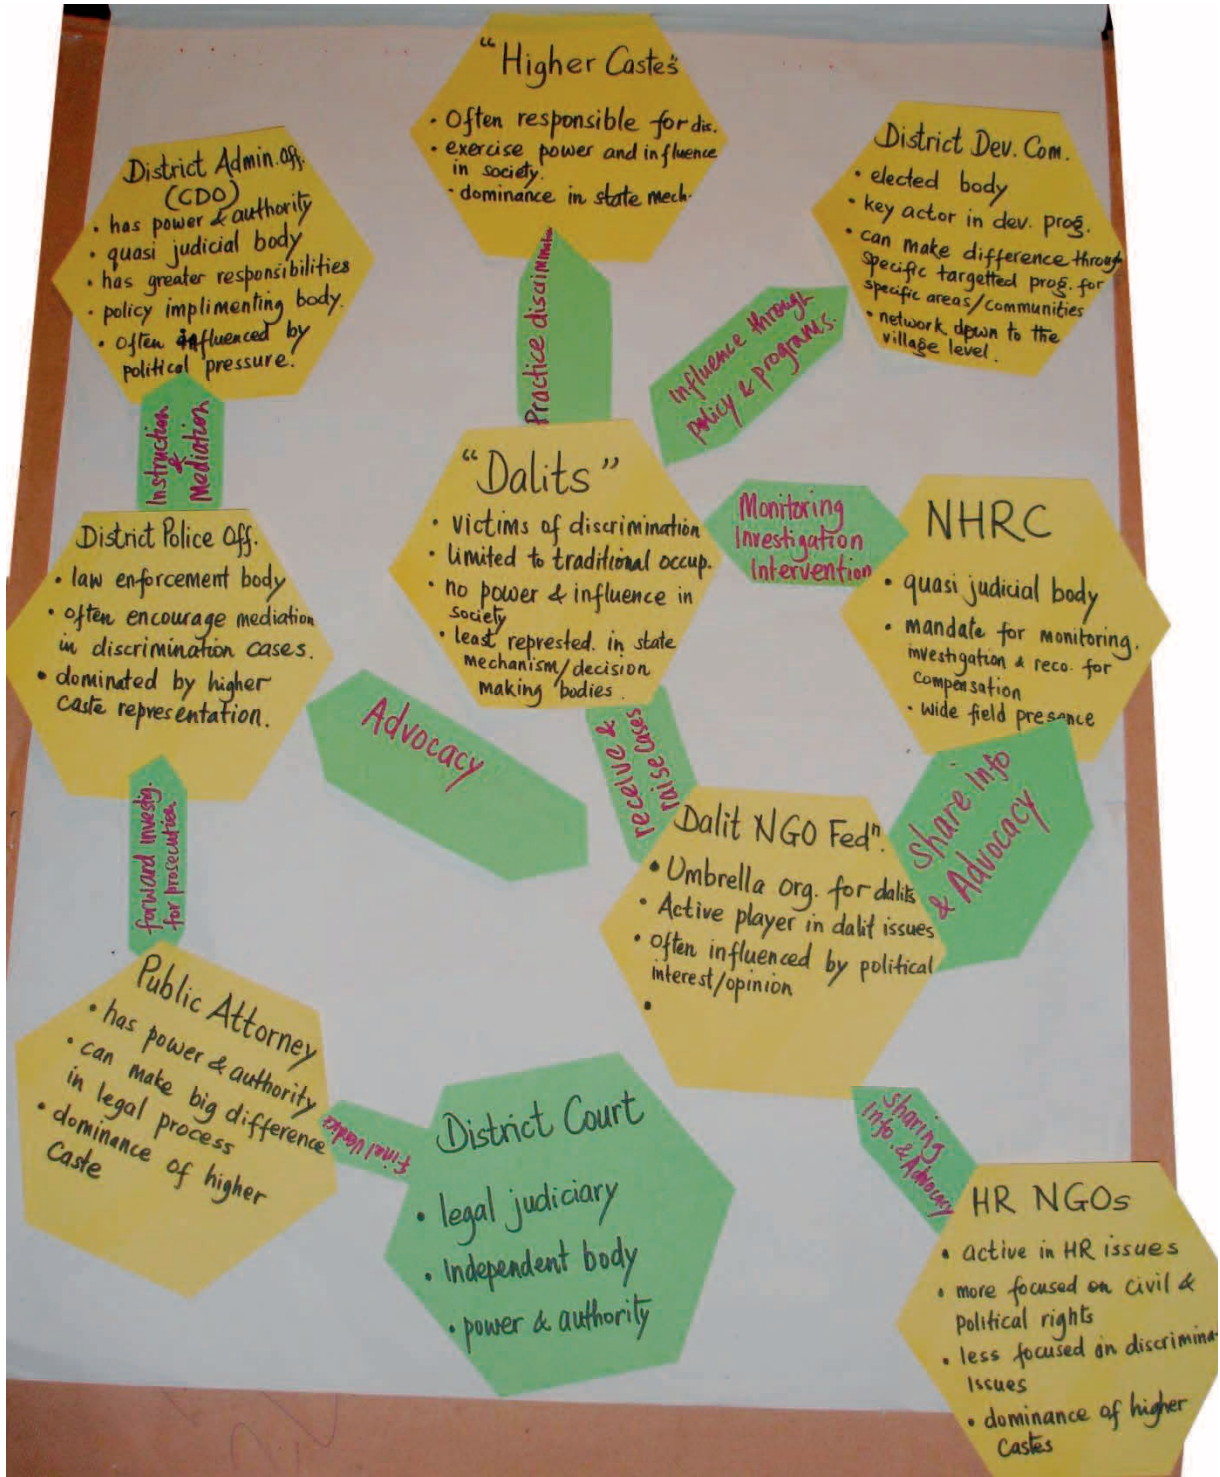 "Higher Castes"
• Often responsible for dis.
• exercise power and influence
in society.
• dominance in state mech.
District Admin. Off.
(CDO)
• has power & authority
• quasi judicial body
• has greater responsibilities
• policy implimenting body.
• often influenced by
political pressure.
District Dev. Com.
• elected body
• key actor in dev. prog.
• can make difference through
specific targetted prog. for
specific areas/communities
• network down to the
village level.
Practice discrimination
Influence through
policy & programs.
Instruction
&
Mediation
"Dalits"
• victims of discrimination
• limited to traditional occup.
• no power & influence in
society
• least represted. in state
mechanism/decision
making bodies.
Monitoring
Investigation
Intervention
NHRC
• quasi judicial body
• mandate for monitoring.
investigation & reco. for
compensation
• wide field presence
District Police Off.
• law enforcement body
• often encourage mediation
in discrimination cases.
• dominated by higher
caste representation.
Advocacy
receive &
raise cases
Share info
& Advocacy
forward investig.
for prosecution
Dalit NGO Fedn.
• Umbrella org. for dalits
• Active player in dalit issues
• often influenced by political
interest/opinion
•
Public Attorney
• has power & authority
• can make big difference
in legal process
• dominance of higher
Caste
Final Verdict
District Court
• legal judiciary
• Independent body
• power & authority
Sharing
info. & Advocacy
HR NGOs
• active in HR issues
• more focused on civil &
political rights
• less focused on discrimina-
Issues
• dominance of higher
Castes